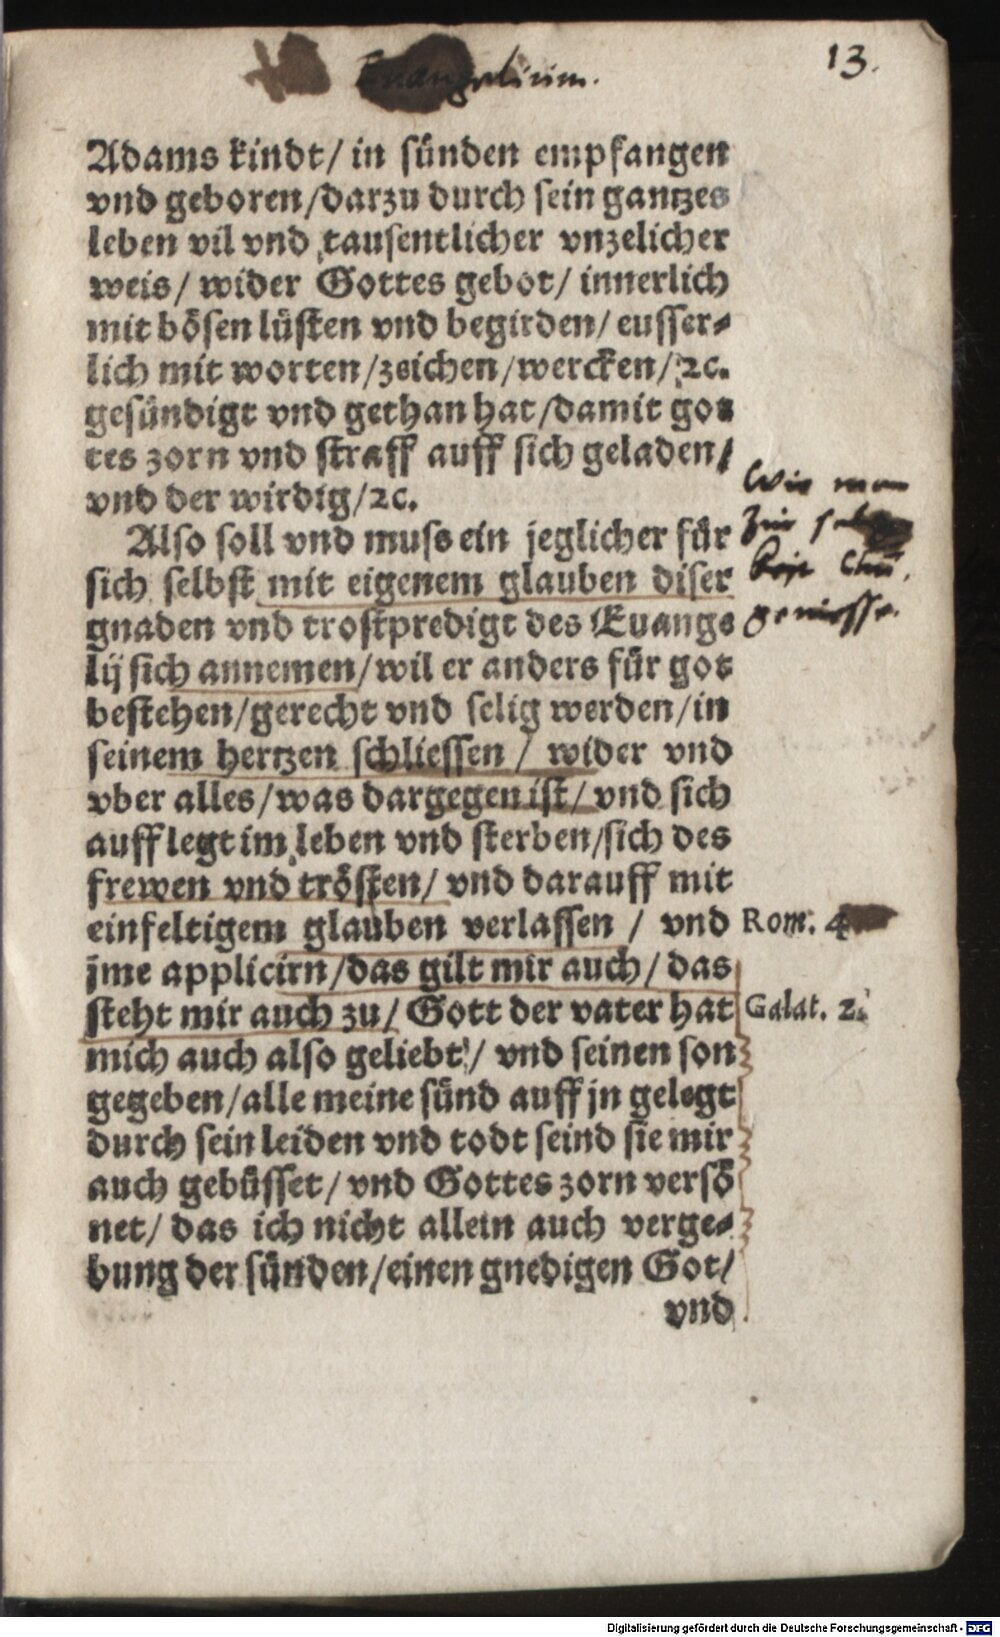 Euangelium.
13.
Adams kindt/ in sünden empfangen
vnd geboren/darzu durch sein gantzes
leben vil vnd tausentlicher vnzelicher
weis/ wider Gottes gebot/ innerlich
mit bösen lüsten vnd begirden/ eusser-
lich mit worten/zeichen/wercken/ꝛc.
gesündigt vnd gethan hat/damit got
tes zorn vnd straff auff sich geladen/
vnd der wirdig/ꝛc.
Also soll vnd muss ein jeglicher für
sich selbst mit eigenem glauben diser
gnaden vnd trostpredigt des Euange
lij sich annemen/wil er anders für got
bestehen/gerecht vnd selig werden/in
seinem hertzen schliessen / wider vnd
vber alles/was dargegen ist/ vnd sich
auff legt im leben vnd sterben/sich des
frewen vnd trösten/ vnd darauff mit
einfeltigem glauben verlassen / vnd
jme applicirn/das gilt mir auch/ das
steht mir auch zu/ Gott der vater hat
mich auch also geliebt/ vnd seinen son
gegeben/alle meine sünd auff jn gelegt
durch sein leiden vnd todt seind sie mir
auch gebüsset/ vnd Gottes zorn versö
net/ das ich nicht allein auch verge-
bung der sünden/einen gnedigen Got/
vnd
Wie man
geniesse.
Rom. 4
Galat. 2.
Digitalisierung gefördert durch die Deutsche Forschungsgemeinschaft - DFG